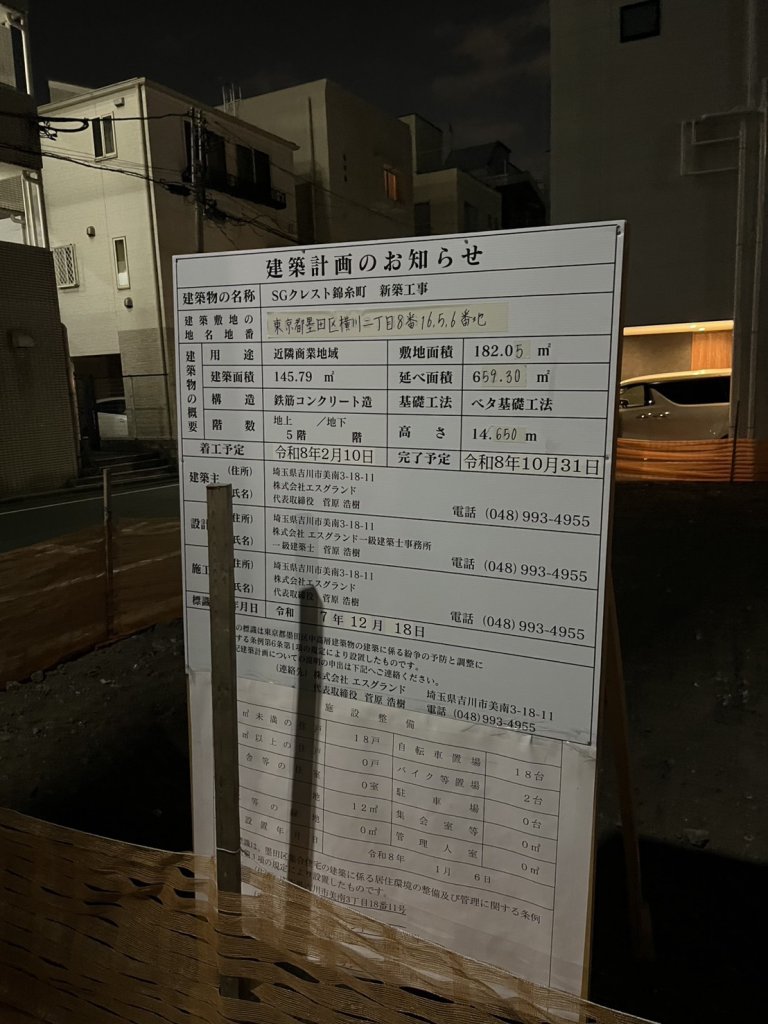 建築計画のお知らせ
建築物の名称 SGクレスト錦糸町 新築工事
建築敷地の地名地番 東京都墨田区横川二丁目8番16.5.6番地
建築物の概要
用途 近隣商業地域 敷地面積 182.05 ㎡
建築面積 145.79 ㎡ 延べ面積 659.30 ㎡
構造 鉄筋コンクリート造 基礎工法 ベタ基礎工法
階数 地上 5階 /地下 階 高さ 14.650 m
着工予定 令和8年2月10日 完了予定 令和8年10月31日
建築主 (住所) 埼玉県吉川市美南3-18-11
株式会社エスグランド
氏名) 代表取締役 菅原 浩樹 電話 (048) 993-4955
設計 住所) 埼玉県吉川市美南3-18-11
株式会社 エスグランド一級建築士事務所
氏名) 一級建築士 菅原 浩樹 電話 (048) 993-4955
施工 住所) 埼玉県吉川市美南3-18-11
株式会社エスグランド
氏名) 代表取締役 菅原 浩樹 電話 (048) 993-4955
標識 年月日 令和 7年 12月 18日
の標識は東京都墨田区中高層建築物の建築に係る紛争の予防と調整に
する条例第6条第1項の規定により設置したものです。
記建築計画についての説明の申出は下記へご連絡ください。
(連絡先) 株式会社 エスグランド 埼玉県吉川市美南3-18-11
代表取締役 菅原 浩樹 電話 (048) 993-4955
施設整備
㎡未満の 戸 18戸 自転車置場 18台
㎡以上の 0戸 バイク等置場 2台
舎等の 室 0室 駐車場 0台
等の 地 12㎡ 集会室等 0㎡
0㎡ 管理人室 0㎡
設置年月日 令和8年 1月 6日
標識は、墨田区集合住宅の建築に係る居住環境の整備及び管理に関する条例
項の規定により設置したものです。
吉川市美南3丁目18番11号